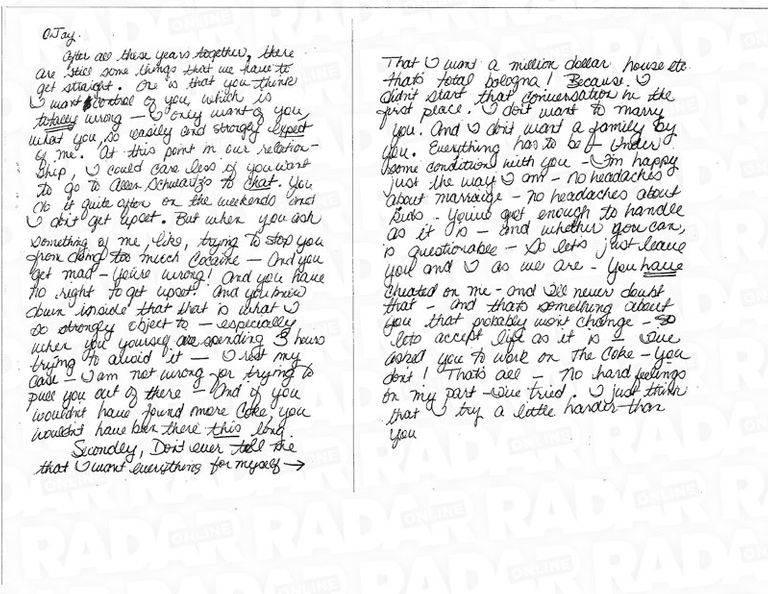 O.Jay.
After all these years together, there
are still some things that we have to
get straight. One is that you think
I want control of you, which is
totally wrong — I only want of you,
what you, so easily and strongly expect
of me. At this point in our relation-
ship, I could care less if you want
to go to Allen Schwartz's to chat. You
do it quite often on the weekends and
I don't get upset. But when you ask
something of me, like, trying to stop you
from doing too much cocaine — And you
get mad — you're wrong! And you have
no right to get upset! And you know
down inside that that is what I
so strongly object to — especially
when you yourself are spending 3 hours
trying to avoid it — I rest my
case — I am not wrong for trying to
pull you out of there — And if you
wouldn't have found more coke, you
wouldn't have been there this long
Secondly, Don't ever tell me
that I want everything for myself →
That I want a million dollar house etc.
that's total bologna! Because, I
didn't start that conversation in the
first place. I don't want to marry
you. And I don't want a family by
you. Everything has to be — under
some condition with you — I'm happy
just the way I am — no headaches
about marriage — no headaches about
kids — You've got enough to handle
as it is — and whether you can,
is questionable — So lets just leave
you and I as we are — You have
cheated on me — and I'll never doubt
that — and that's something about
you that probably won't change — so
lets accept life as it is — I've
asked you to work on the coke — you
don't! That's all — No hard feelings
on my part — I've tried. I just think
that I try a little harder than
you
RADAR
ONLINE